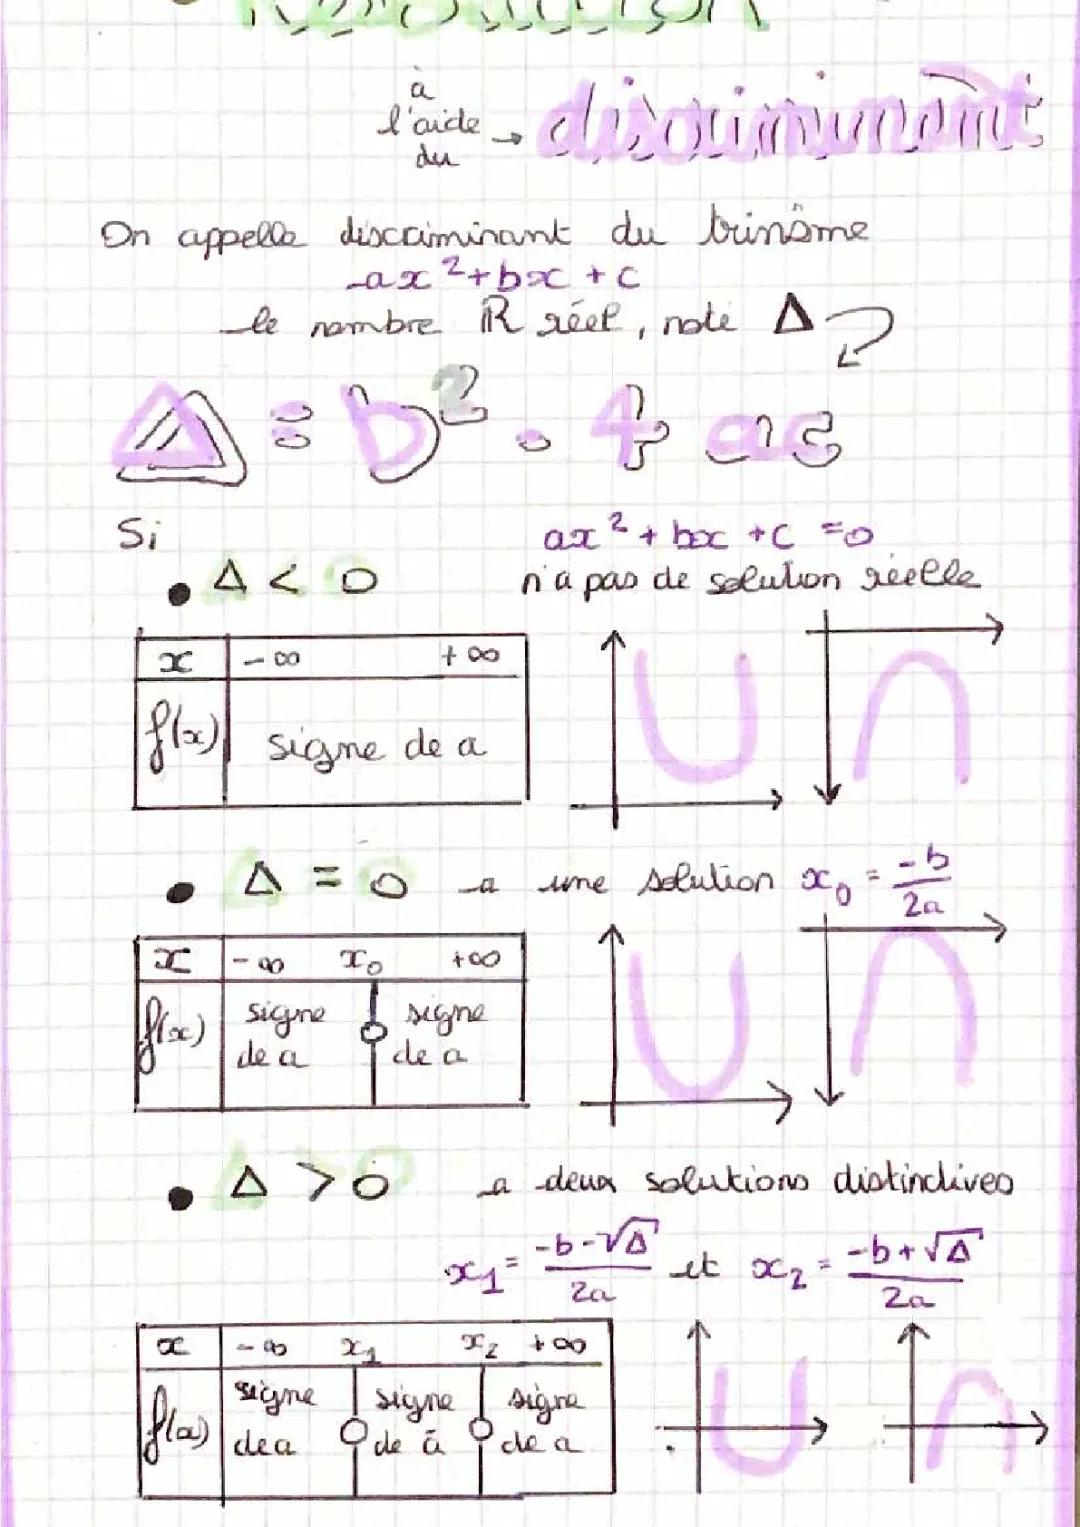 à
l'aide → discriminant
du
On appelle discriminant du trinôme
ax²+bx+c
le nombre ℝ réel, noté Δ
Δ = b² - 4 ac
Si
ax² + bx + c = 0
• Δ < 0 n'a pas de solution réelle
x -∞ +∞
f(x) signe de a
• Δ = 0 a une solution x₀ = -b/2a
x -∞ x₀ +∞
f(x) signe signe
de a de a
• Δ > 0 a deux solutions distinctives
x₁ = -b-√Δ/2a et x₂ = -b+√Δ/2a
x -∞ x₁ x₂ +∞
f(x) signe signe signe
de a de a de a